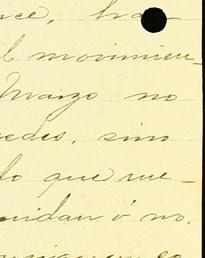 l movimien-
Marzo no
edes, sino
lo que me-
uidan ó no.